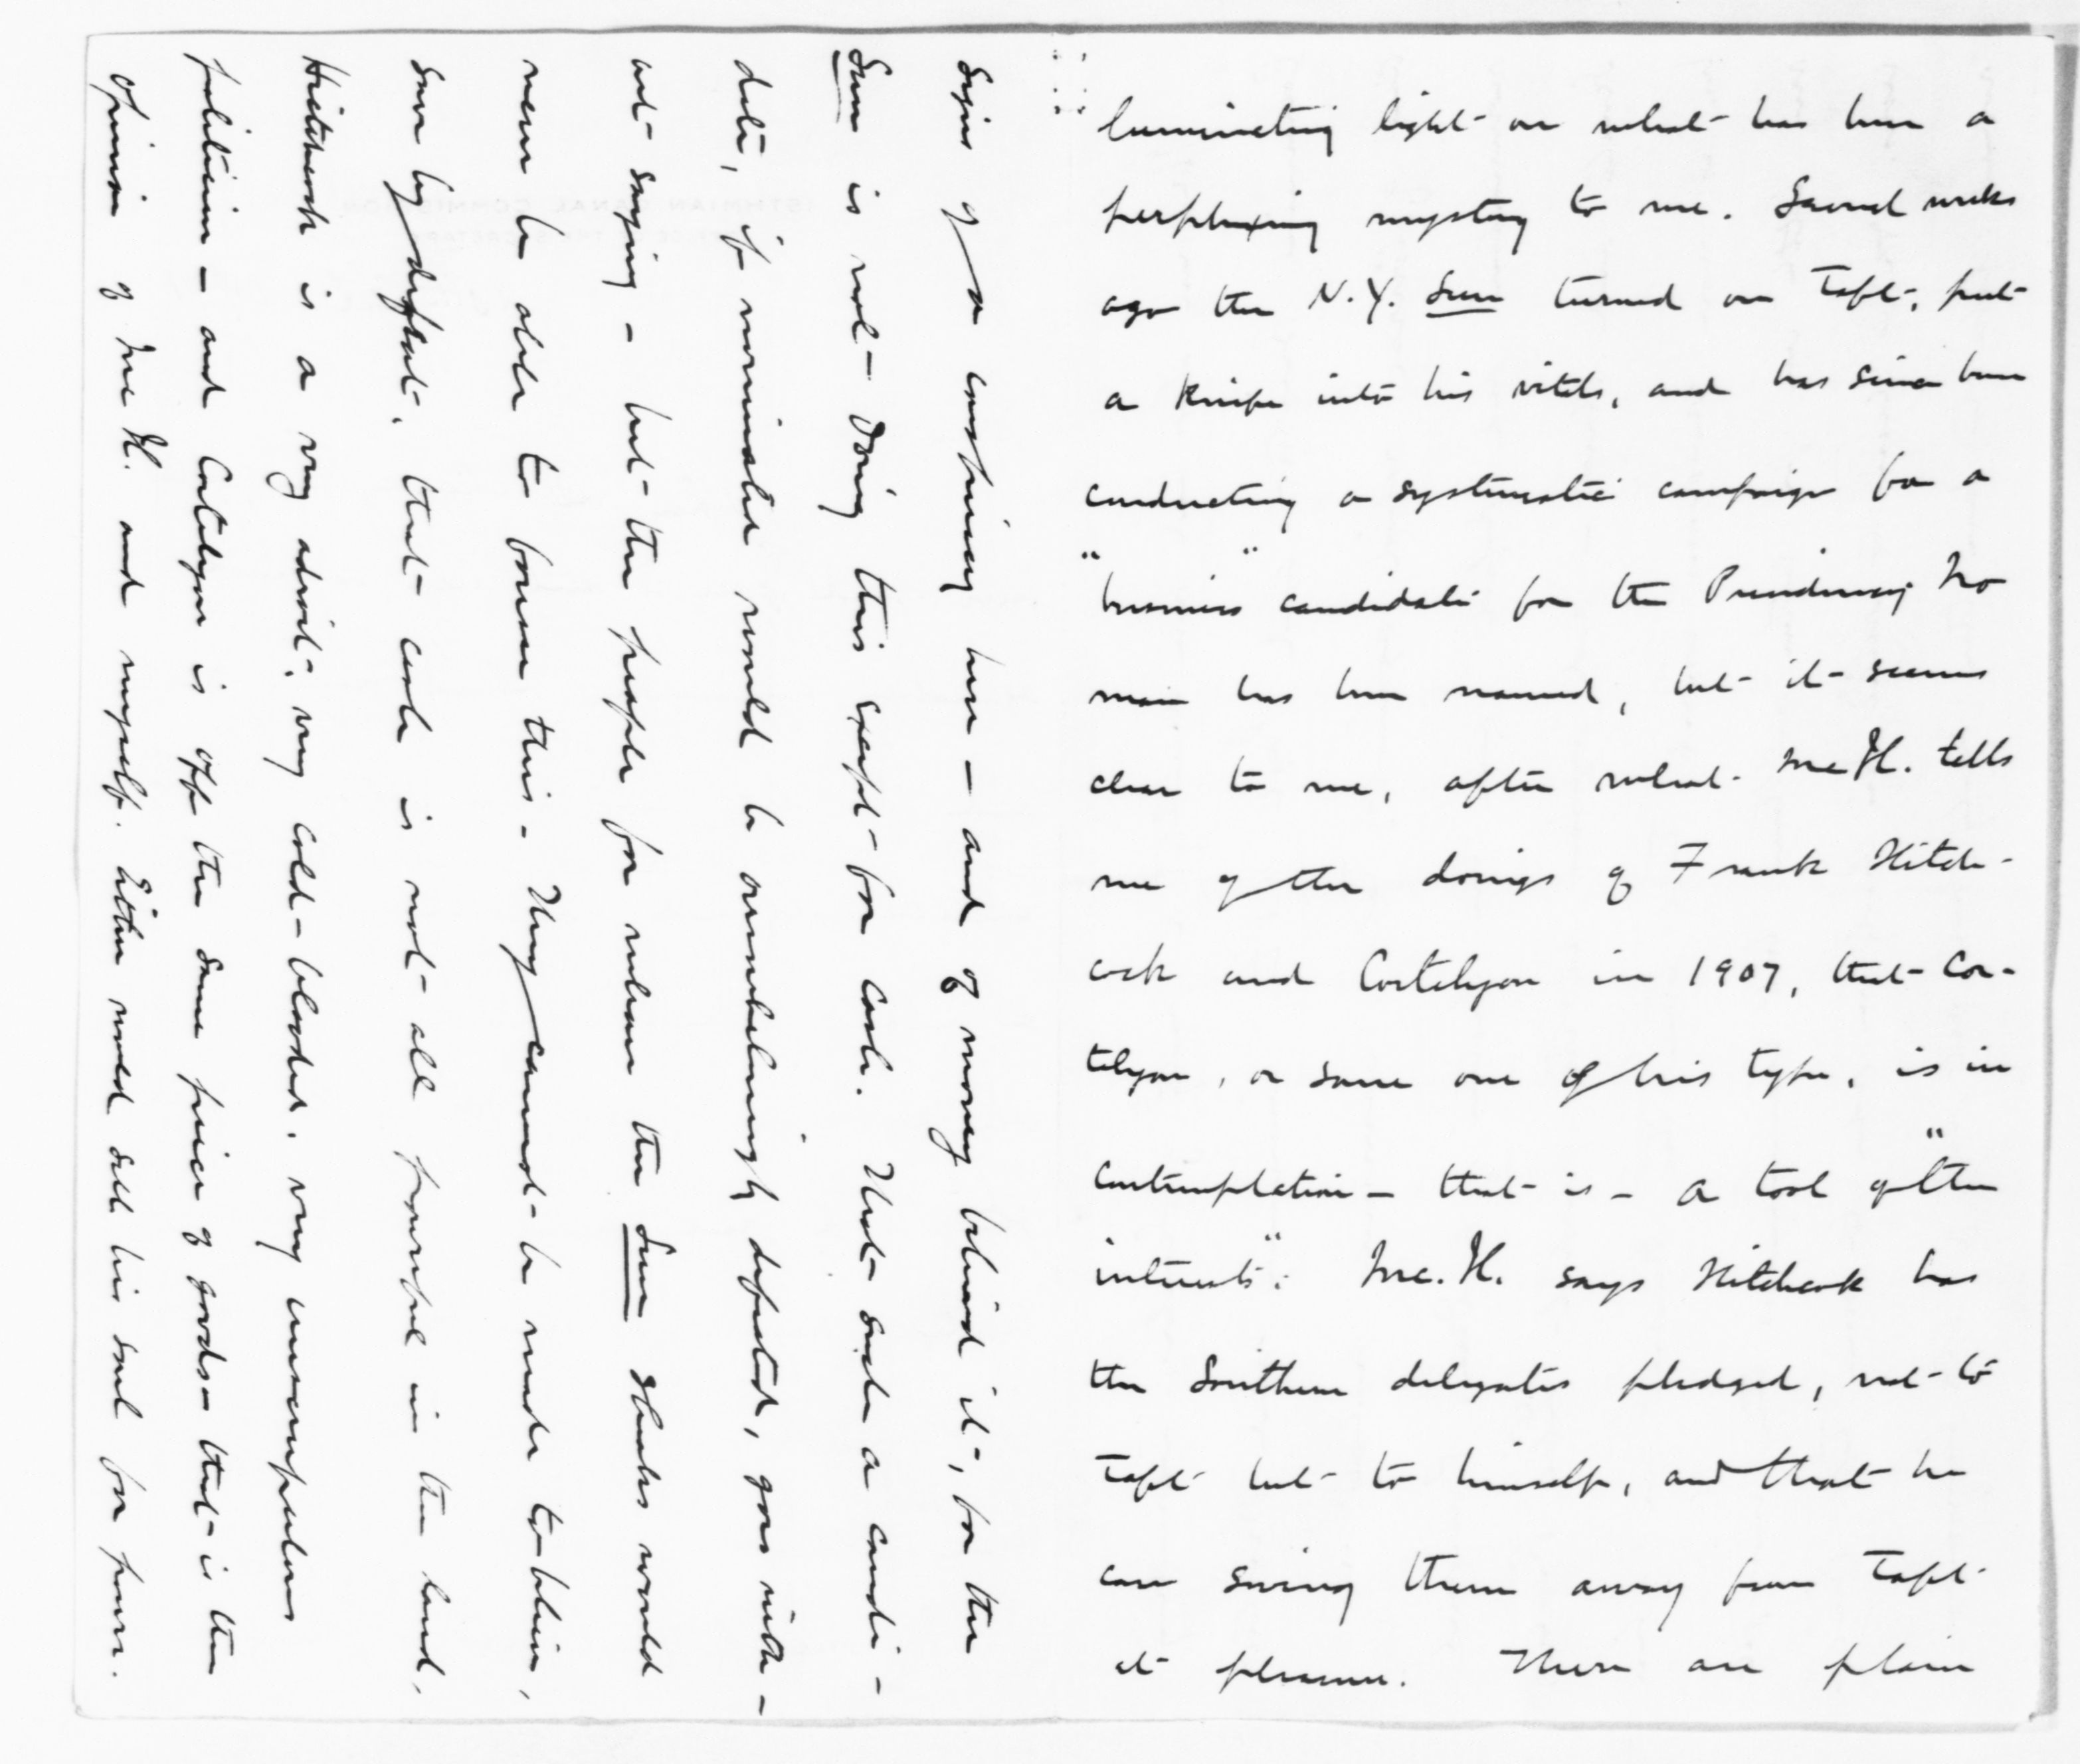 luminating light on what has been a
perplexing mystery to me. Several weeks
ago the N.Y. Sun turned on Taft, put
a knife into his vitals, and has since been
conducting a systematic campaign for a
"business" candidate for the Presidency. No
man has been named, but it seems
clear to me, after what McH. tells
me of the doings of Frank Hitch-
cock and Cortelyou in 1907, that Cor-
telyou, or some one of his type, is in
contemplation - that is - a tool of "the
interests". Mc.H. says Hitchcock has
the Southern delegates pledged, not to
Taft but to himself, and that he
can swing them away from Taft
at pleasure. There are plain
signs of a conspiracy here - and of money behind it, for the
Sun is not doing this except for cash. That such a candi-
date, if nominated would be overwhelmingly defeated, goes with-
out saying - but the people for whom the Sun speaks would
never be able to believe this. They cannot be made to believe,
save by defeat, that cash is not all powerful in the land.
Hitchcock is a very adroit, very cold-blooded, very unscrupulous
politician - and Cortelyou is off the same piece of goods - that is the
opinion of McH. and myself. Either would sell his soul for power.